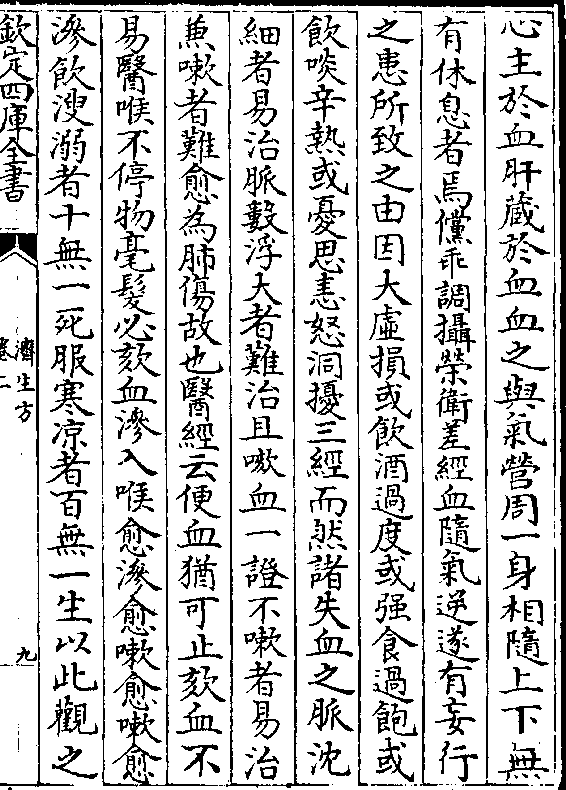 心主於血肝藏於血血之與氣營周一身相隨上下無
有休息者焉儻乖調攝榮衛差經血隨氣逆遂有妄行
之患所致之由因大虛損或飲酒過度或强食過飽或
飲啖辛熱或憂思恚怒洞擾三經而然諸失血之脈沈
細者易治脈數浮大者難治且嗽血一證不嗽者易治
兼嗽者難愈為肺傷故也醫經云便血猶可止欬血不
易醫喉不停物毫髮必欬血滲入喉愈滲愈嗽愈嗽愈
滲飲溲溺者十無一死服寒凉者百無一生以此觀之
欽定四庫全書
濟生方
卷二
九